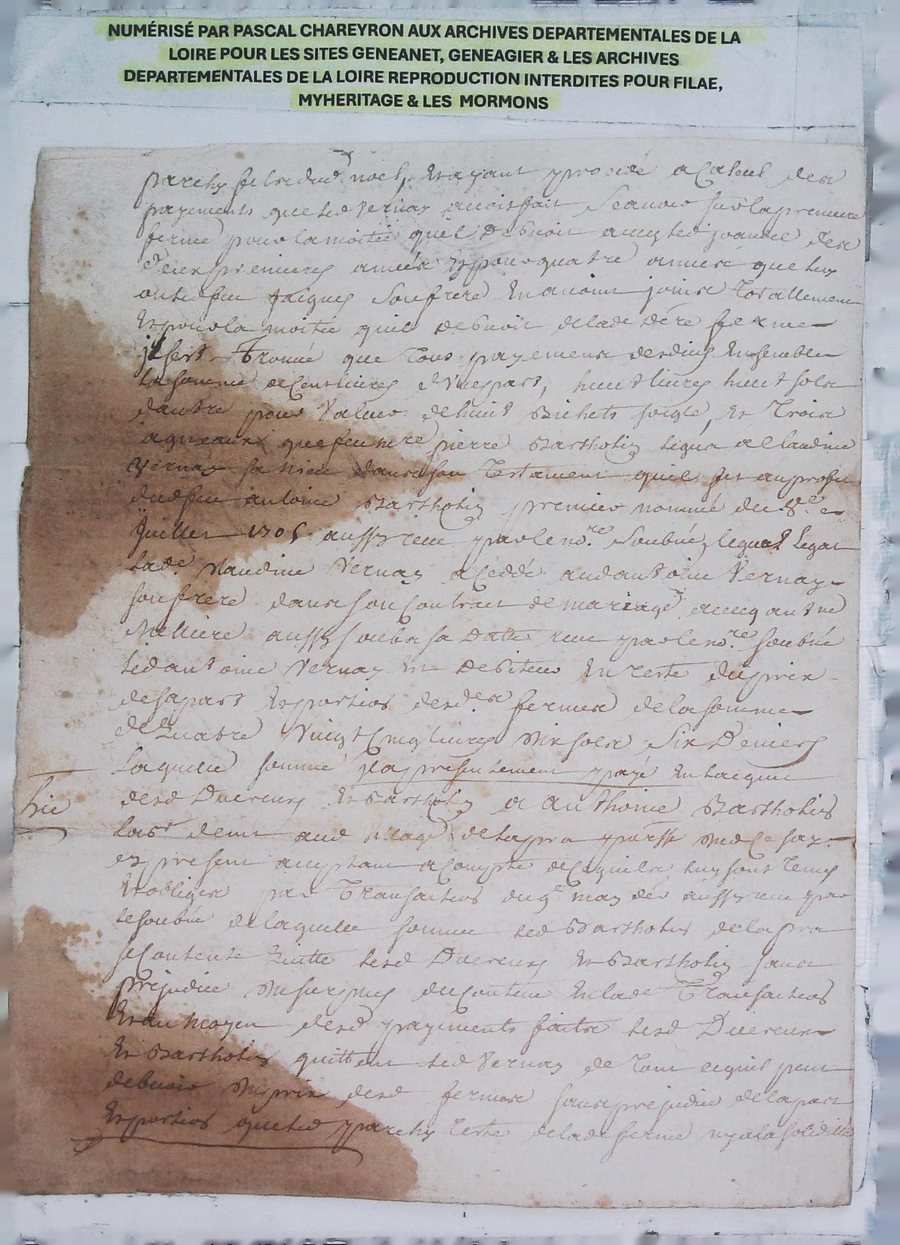 NUMÉRISÉ PAR PASCAL CHAREYRON AUX ARCHIVES DEPARTEMENTALES DE LA
LOIRE POUR LES SITES GENEANET, GENEAGIER & LES ARCHIVES
DEPARTEMENTALES DE LA LOIRE REPRODUCTION INTERDITES POUR FILAE,
MYHERITAGE & LES MORMONS
noel, Et ayant procedé a Calcul des
payements que led Vernay avoit fait Scavoir sur la premiere
ferme pour la moitié quil Debvoit avecq led des
deux premieres années Et pour quatre années que luy
ou led feu Jacques Son frere En avoint jouis Totallement
Et pour la moitié quil Debvoit de lad dere ferme
il sest Trouvé que Tous payements desdus Ensemble
la somme de Cent livres d'Une part, huit livres huit sols
dautre pour Valeur de huit Bichets soigle, Et Trois
agneaux que feu pierre Bartholin legua a Claudine
Vernay sa niece dans son Testament quil fit au profit
dud feu antoine Bartholin premier nommé du 8e
Juillet 1705 aussy receu par le nore Soubné, lequel Legat
lade Claudine Vernay a Ceddé aud antoine Vernay
son frere dans son Contrat de mariage avecq
aussy soubs sa Datte receu par le nore soubné
led antoine Vernay Est Debiteur En reste du prix
de sa part Et portion desd fermes de la somme
de Quatre Vingt Cinq livres dix sols Six Deniers
Laquelle somme il a presentement payé En lacquit
desd Et Bartholin a anthoine Bartholin
hic
aud village de Lapra
Et present acceptant a Compte de Ce quils luy sont Tenus
Et obligés par Transaction du 9e may aussy receu par
le soubné de laquelle somme led Bartholin de lapra
se Contente Quitte lesd Et Bartholin sans
prejudice du surplus du Contenu En lade Transaction
Et au moyen desd payements faits lesd
Et Bartholin quittent led Vernay de Tout ce quil peut
debvoir du prix desd fermes sans prejudice de la part
Et portion que led reste de lade ferme ny a la solidité